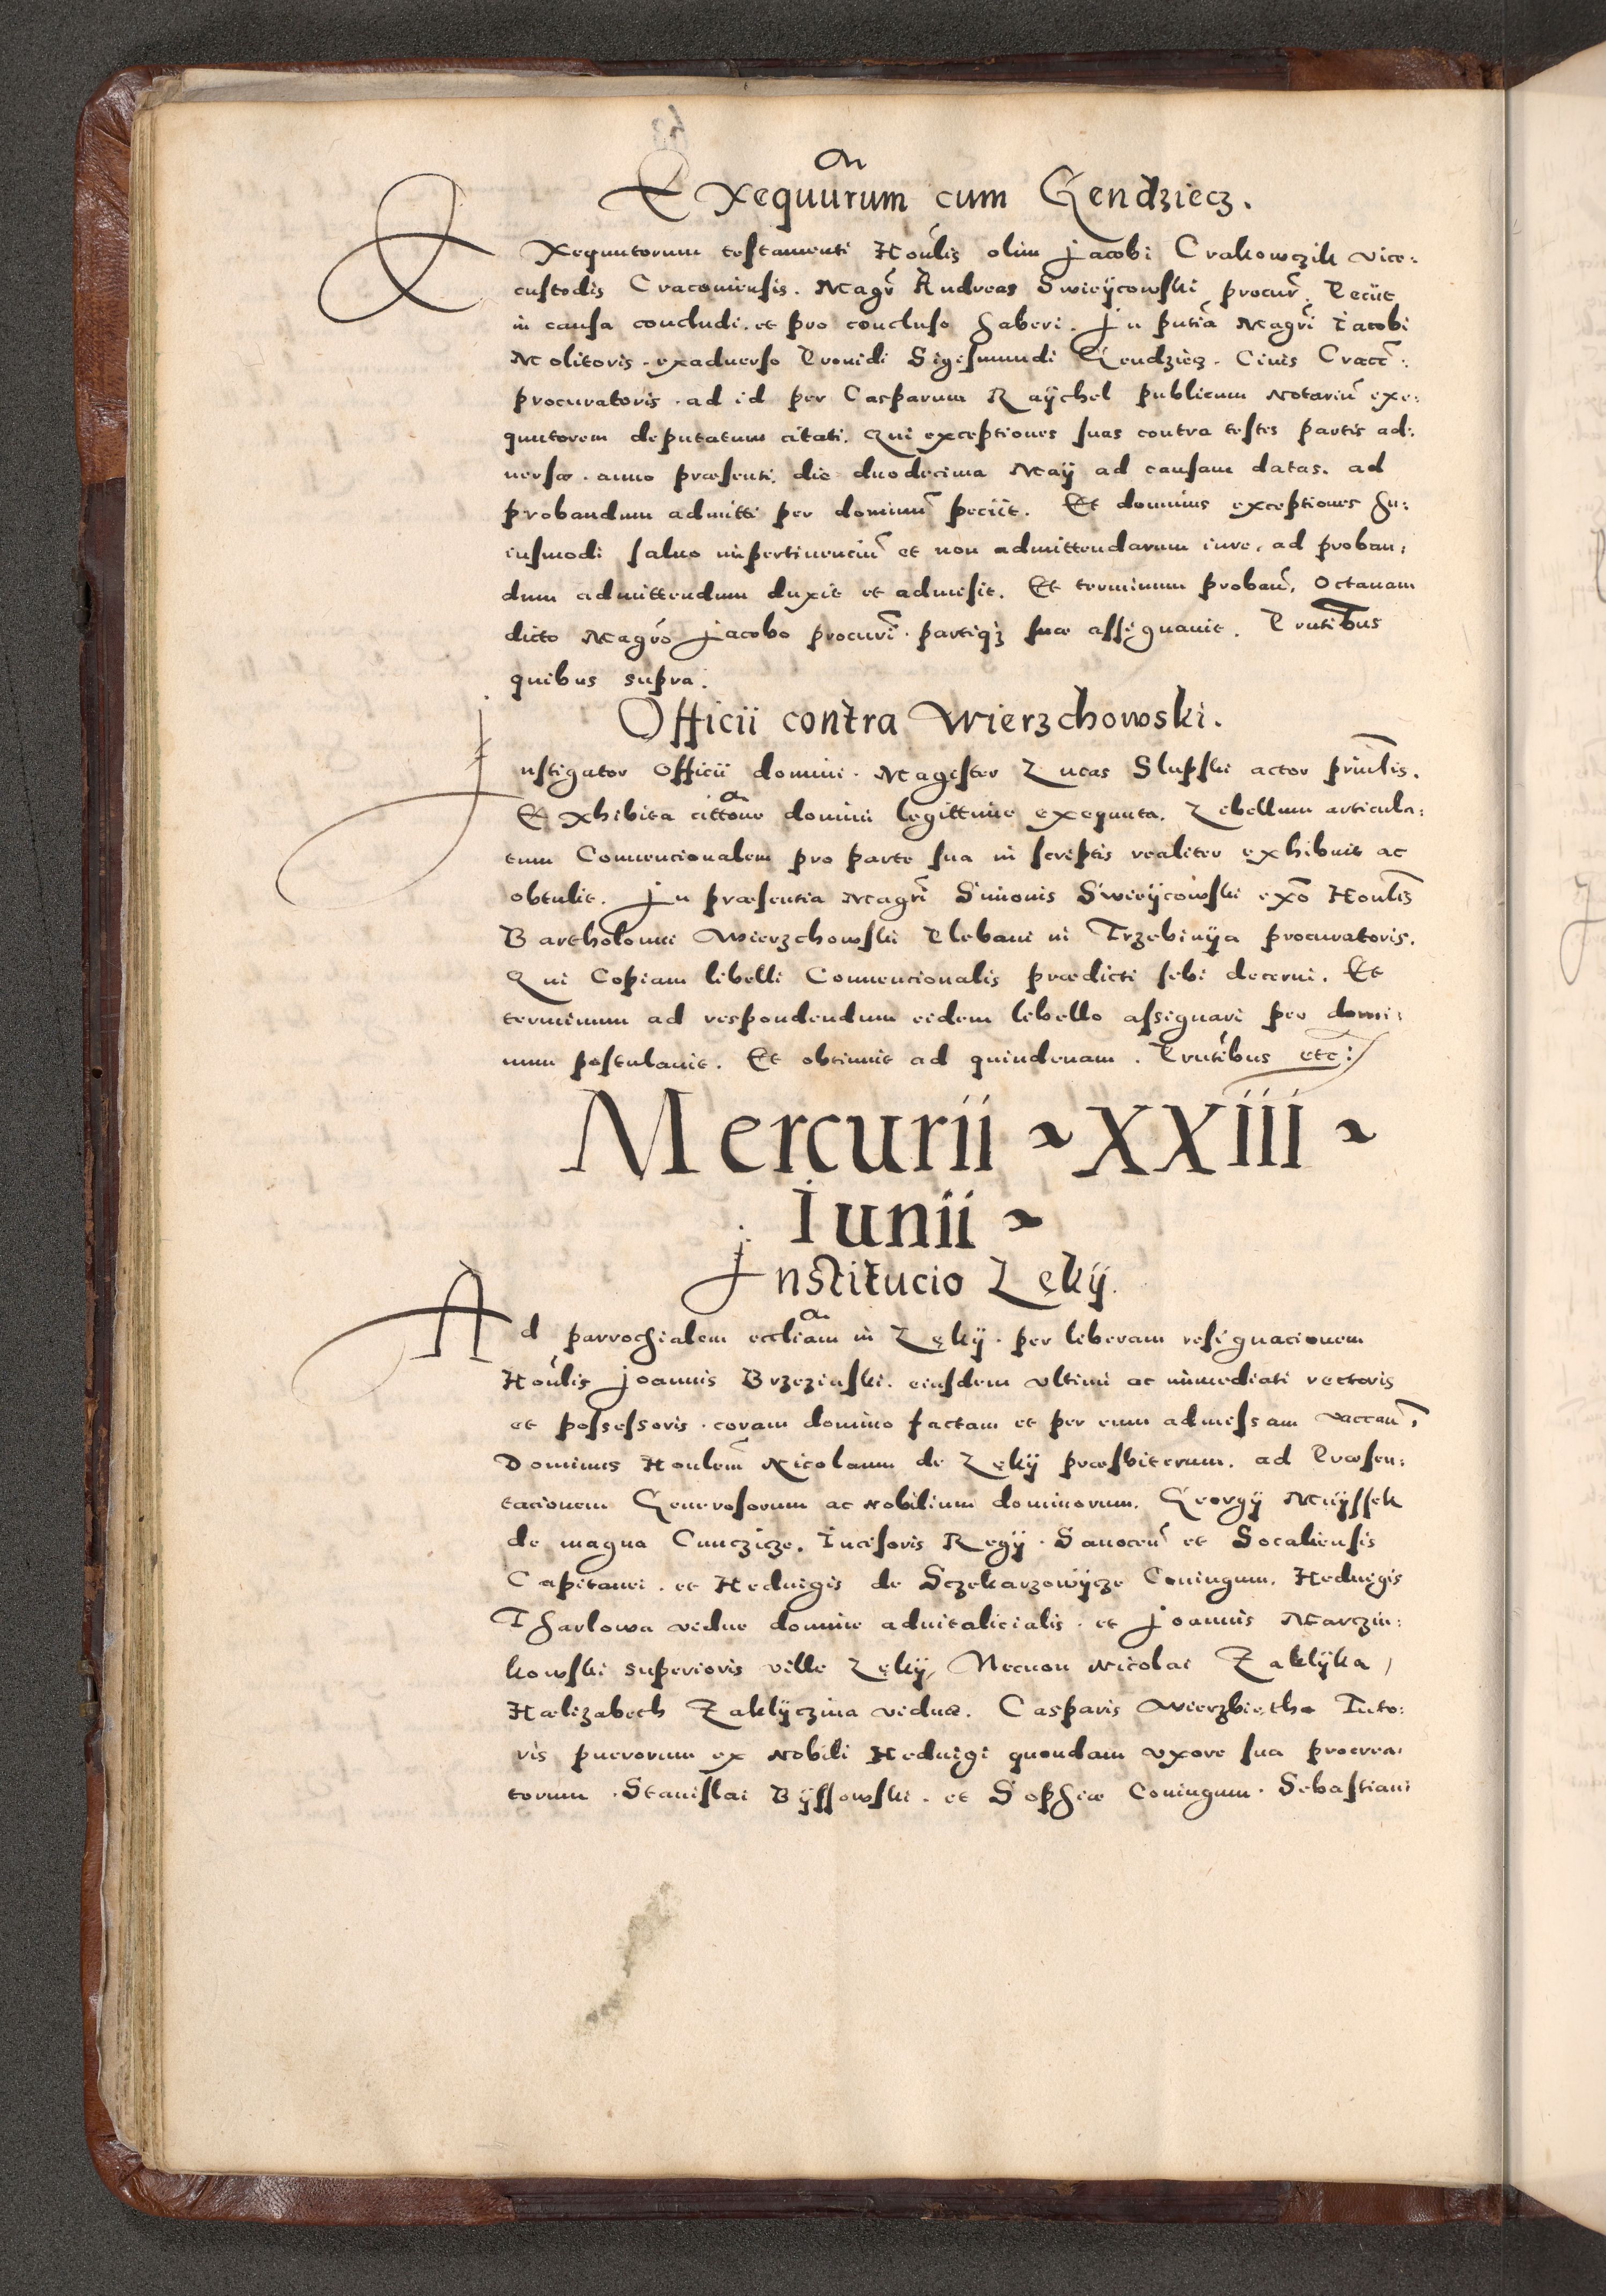 Exequuturum cum Gendziecz.
Exequutorum testamenti Honlis olim Jacobi Crakowczik vice:
custodis Cracouiensis. Magr Andreas Swieijcowski procur. Peciit
in causa concludi. et pro concluso haberi. In pntia Magri Iacobi
Molitoris. exaduerso Prouidi Sigismundi Gendziecz. Ciuis Cracc:
procuratoris. ad id per Casparum Raijchel publicum Notariu exe:
quutorem deputatum citati. Qui exceptiones suas contra testes partis ad:
uersæ. anno præsenti. die duodecima Maij ad causam datas. ad
probandum admitti per dominu peciit. Et dominus exceptiones hu:
iusmodi saluo impertinenciu et non admittendarum iure, ad proban:
dum admittendum duxit et admisit. Et terminum proban, Octauam
dicto Magro Jacobo procuri. partiqz suæ assignauit. Pntibus
quibus supra.
Officii contra Wierzchowski.
Instigator Officii domini. Magister Lucas Slupski actor prinlis.
Exhibita cittone domini legittime exequuta. Libellum articula:
tum Conuencionalem pro parte sua in scriptis realiter exhibuit ac
obtulit. In præsentia Magri Simonis Swieijcowski exo Honlis
Bartholomei Wierzchowski Plebani in Trzebinija procuratoris.
Qui Copiam libelli Conuencionalis prædicti sibi decerni. Et
terminum ad respondendum eidem libello assignari per domi:
num postulauit. Et obtinuit ad quindenam. Pntibus etc:
Mercurii ~ XXIII ~
Iunii ~
Institucio Lękij.
Ad parrochialem eccliam in Lękij. per liberam resignacionem
Honlis Joannis Brzezinski. eiusdem vltimi ac immediati rectoris
et possessoris. coram domino factam et per eum admissam vaccan,
Dominus Honlem Nicolaum de Lękij præsbiterum. ad Præsen:
tacionem Generosorum ac Nobilium dominorum. Georgij Mnijssek
de magna Cunczicze. Incisoris Regij. Sanocen et Socaliensis
Capitanei. et Heduigis de Sczekarzowijcze Coniugum. Heduigis
Tharlowa vidue domine aduitalicialis. et Joannis Marczin:
kowski superioris ville Lękij, Necnon Nicolai Zaklijka,
Hælizabeth Zaklijczina viduæ. Casparis Wierzbiętha Tuto:
ris puerorum ex Nobili Heduigi quondam vxore sua procrea:
torum. Stanislai Bijssowski. et Sophiæ Coniugum. Sebastiani